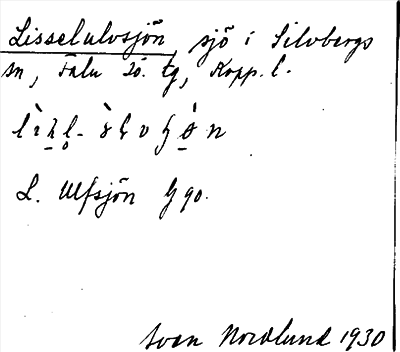 Lisselulvsjön, sjö i Silvbergs
sn, Falu Sö. tg, Kopp. l.
L. Ulfsjön G 90.
Sven Nordlund 1930